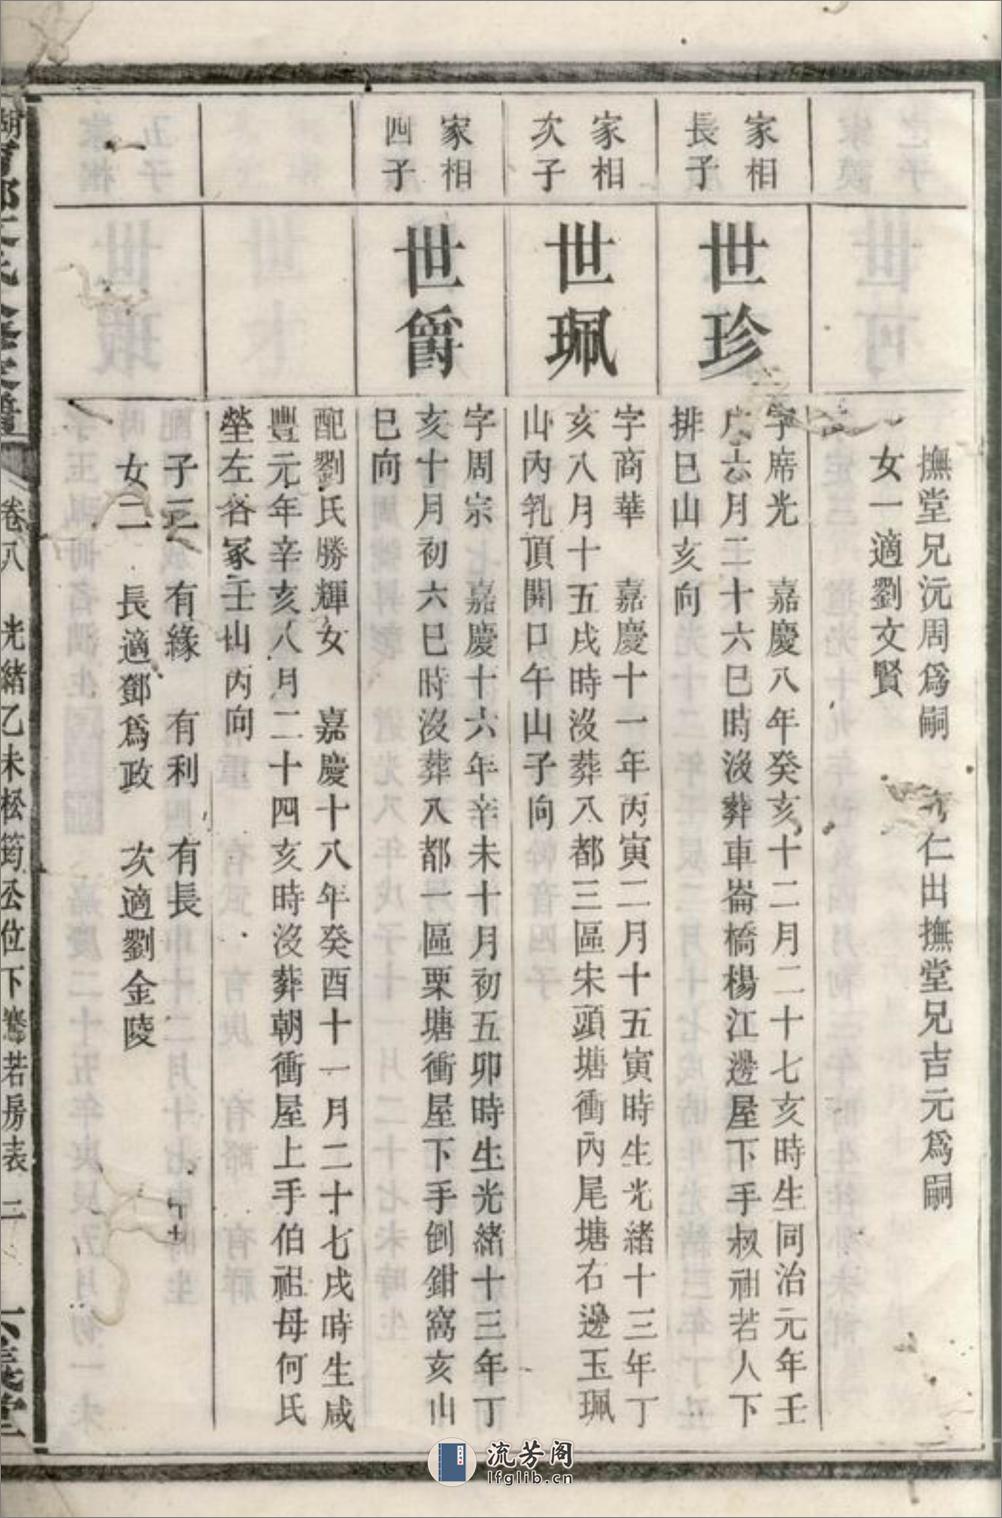 撫堂兄沅周爲嗣　有仁出撫堂兄吉元爲嗣
女一適劉文賢
家相
長子
世珍
字席光　嘉慶八年癸亥十二月二十七亥時生同治元年壬
戌六月二十六巳時沒葬車崙橋楊江邊屋下手叔祖若人下
排巳山亥向
家相
次子
世珮
字商華　嘉慶十一年丙寅二月十五寅時生光緒十三年丁
亥八月十五戌時沒葬八都三區宋頭塘衝內尾塘右邊玉珮
山內乳頂開口午山子向
家相
四子
世爵
字周宗　嘉慶十六年辛未十月初五卯時生光緒十三年丁
亥十月初六巳時沒葬八都一區栗塘衝屋下手倒鉗窩亥山
巳向
配劉氏勝輝女　嘉慶十八年癸酉十一月二十七戌時生咸
豐元年辛亥八月二十四亥時沒葬朝衝屋上手伯祖母何氏
塋左各冢壬山丙向
子三　有緣　有利　有長
女二　長適鄧爲政　次適劉金陵
卷八　光緒乙未松筠公位下騫若房表　二
六義堂
流芳阁
lfglib.cn